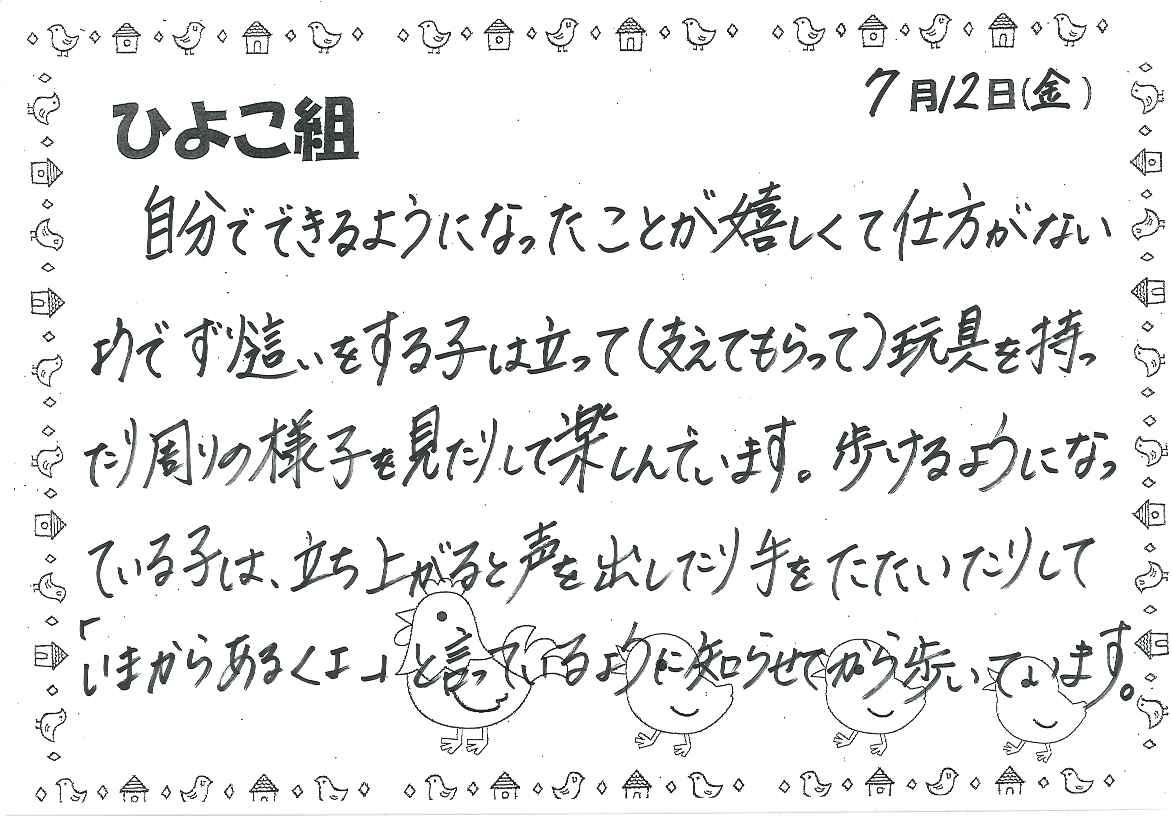 7月12日(金)
ひよこ組
自分でできるようになったことが嬉しくて仕方がない
ようでずり這いをする子は立って(支えてもらって)玩具を持っ
たり周りの様子を見たりして楽しんでいます。歩けるようになっ
ている子は、立ち上がると声を出したり手をたたいたりして
「いまからあるくよー」と言っているように知らせてから歩いています。